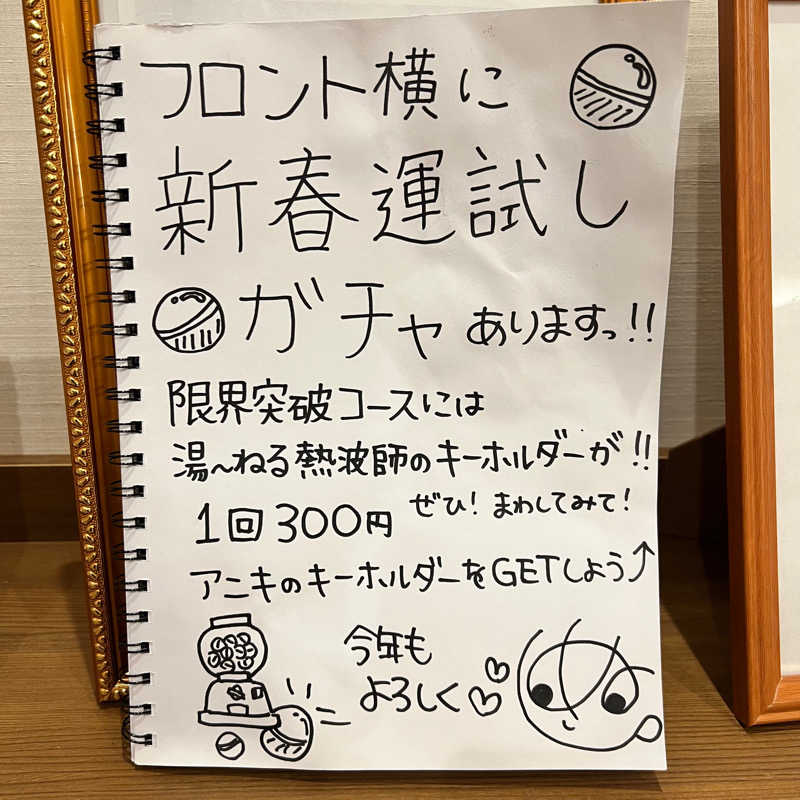 フロント横に
新春運試し
ガチャ ありますっ!!
限界突破コースには
湯〜ねる熱波師のキーホルダーが!!
1回300円 ぜひ!まわしてみて!
アニキのキーホルダーをGETしよう↑
今年も
よろしく♡♡